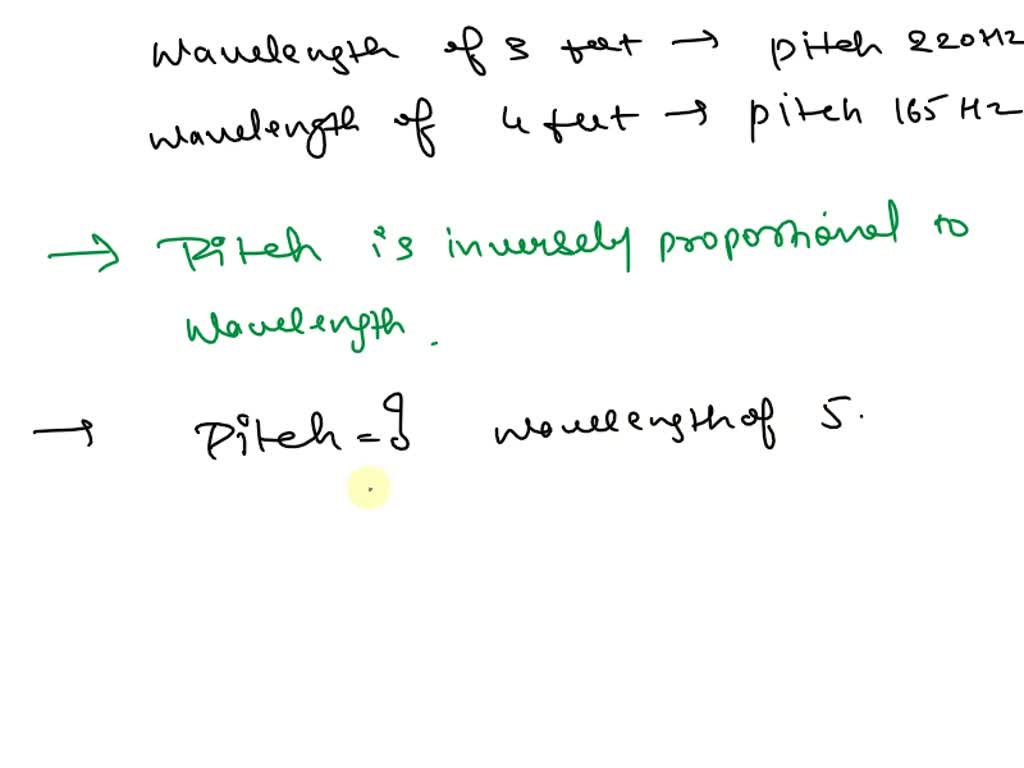 Wavelength of 3 feet → pitch 220Hz
Wavelength of 4 feet → pitch 165 Hz
→ Pitch is inversely proportional to
Wavelength.
→ Pitch = ? wavelength of 5.